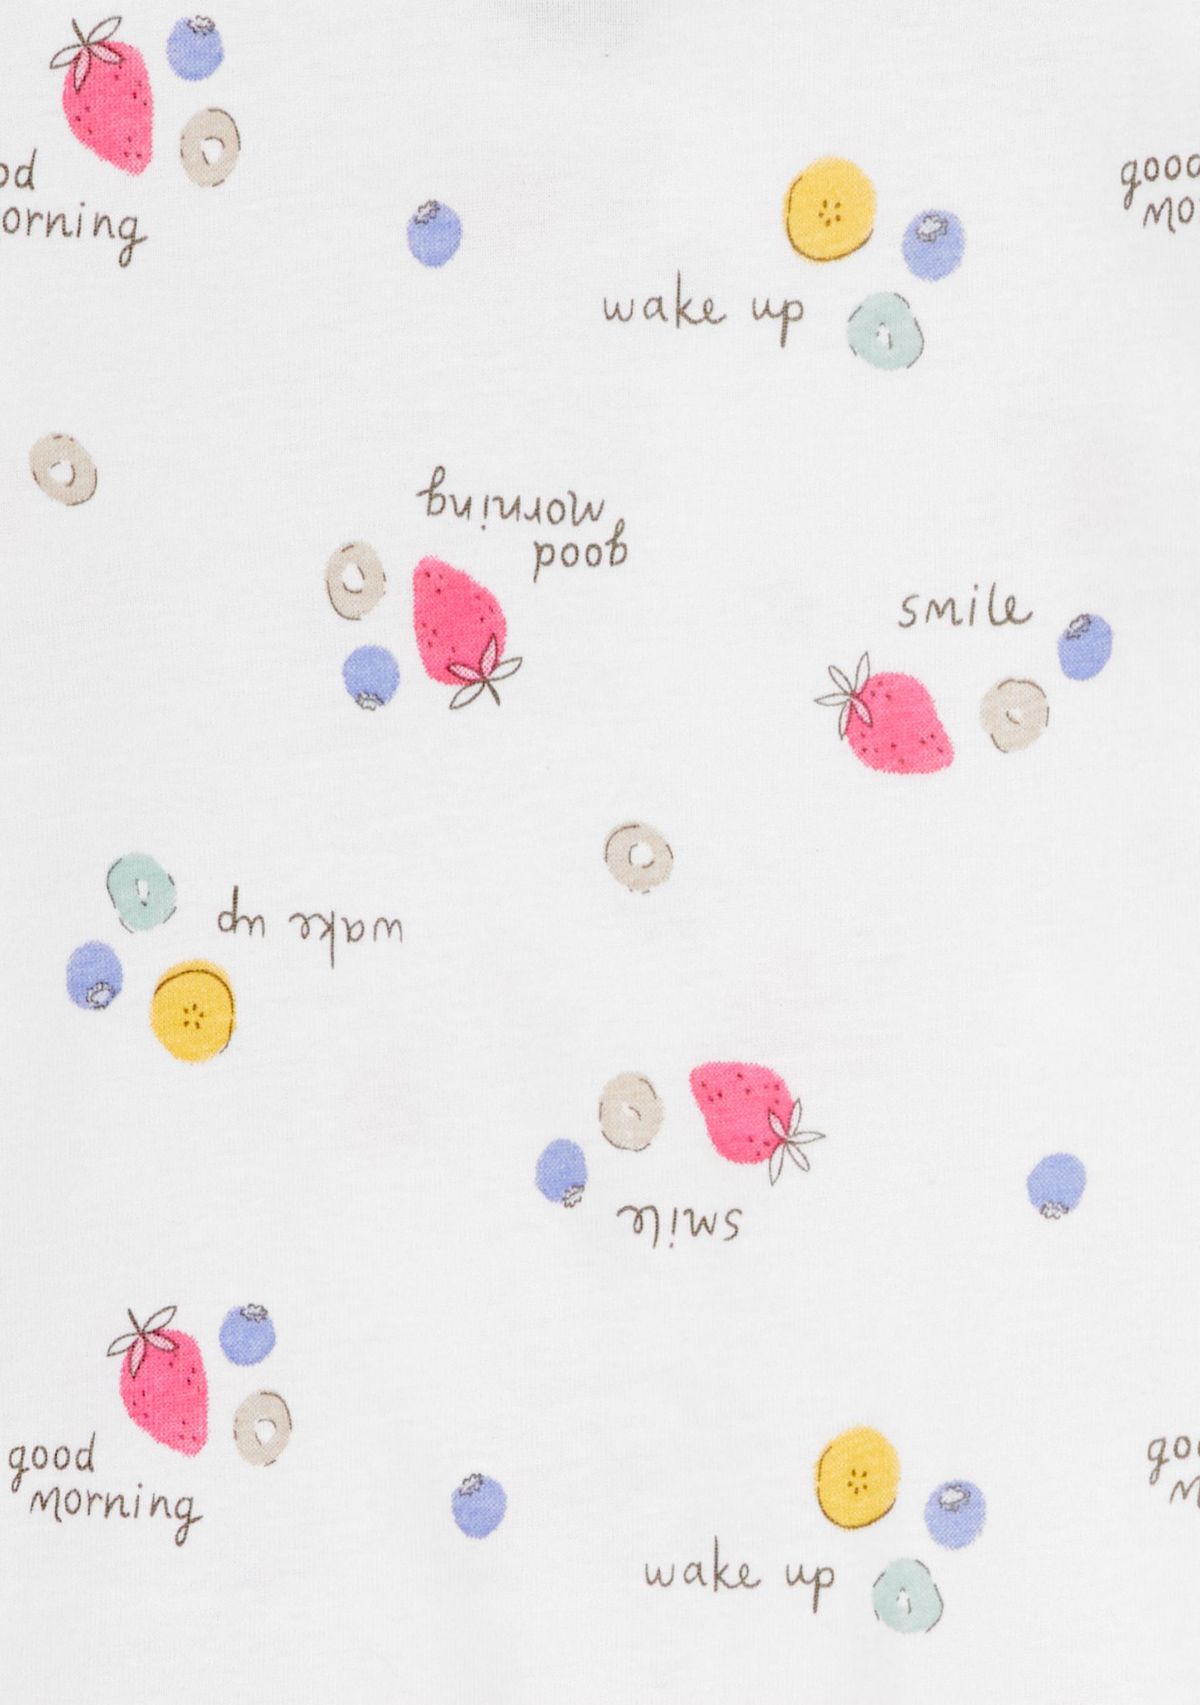 od
orning
good
mo
wake up
good
morning
smile
wake up
smile
good
morning
goo
m
wake up